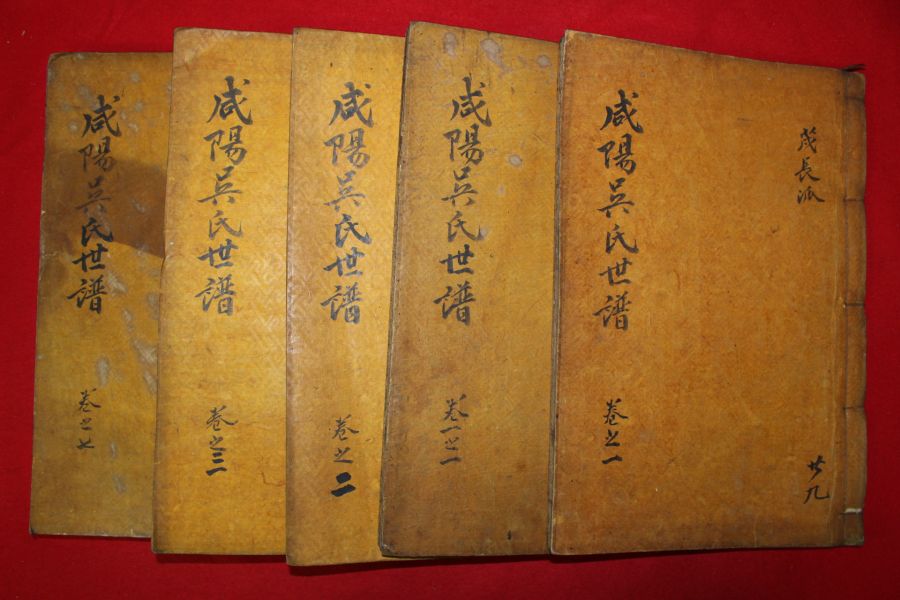 茂長派
廿九
咸陽吳氏世譜
卷之一
咸陽吳氏世譜
卷一之一
咸陽吳氏世譜
卷之二
咸陽吳氏世譜
卷之三
咸陽吳氏世譜
卷之七